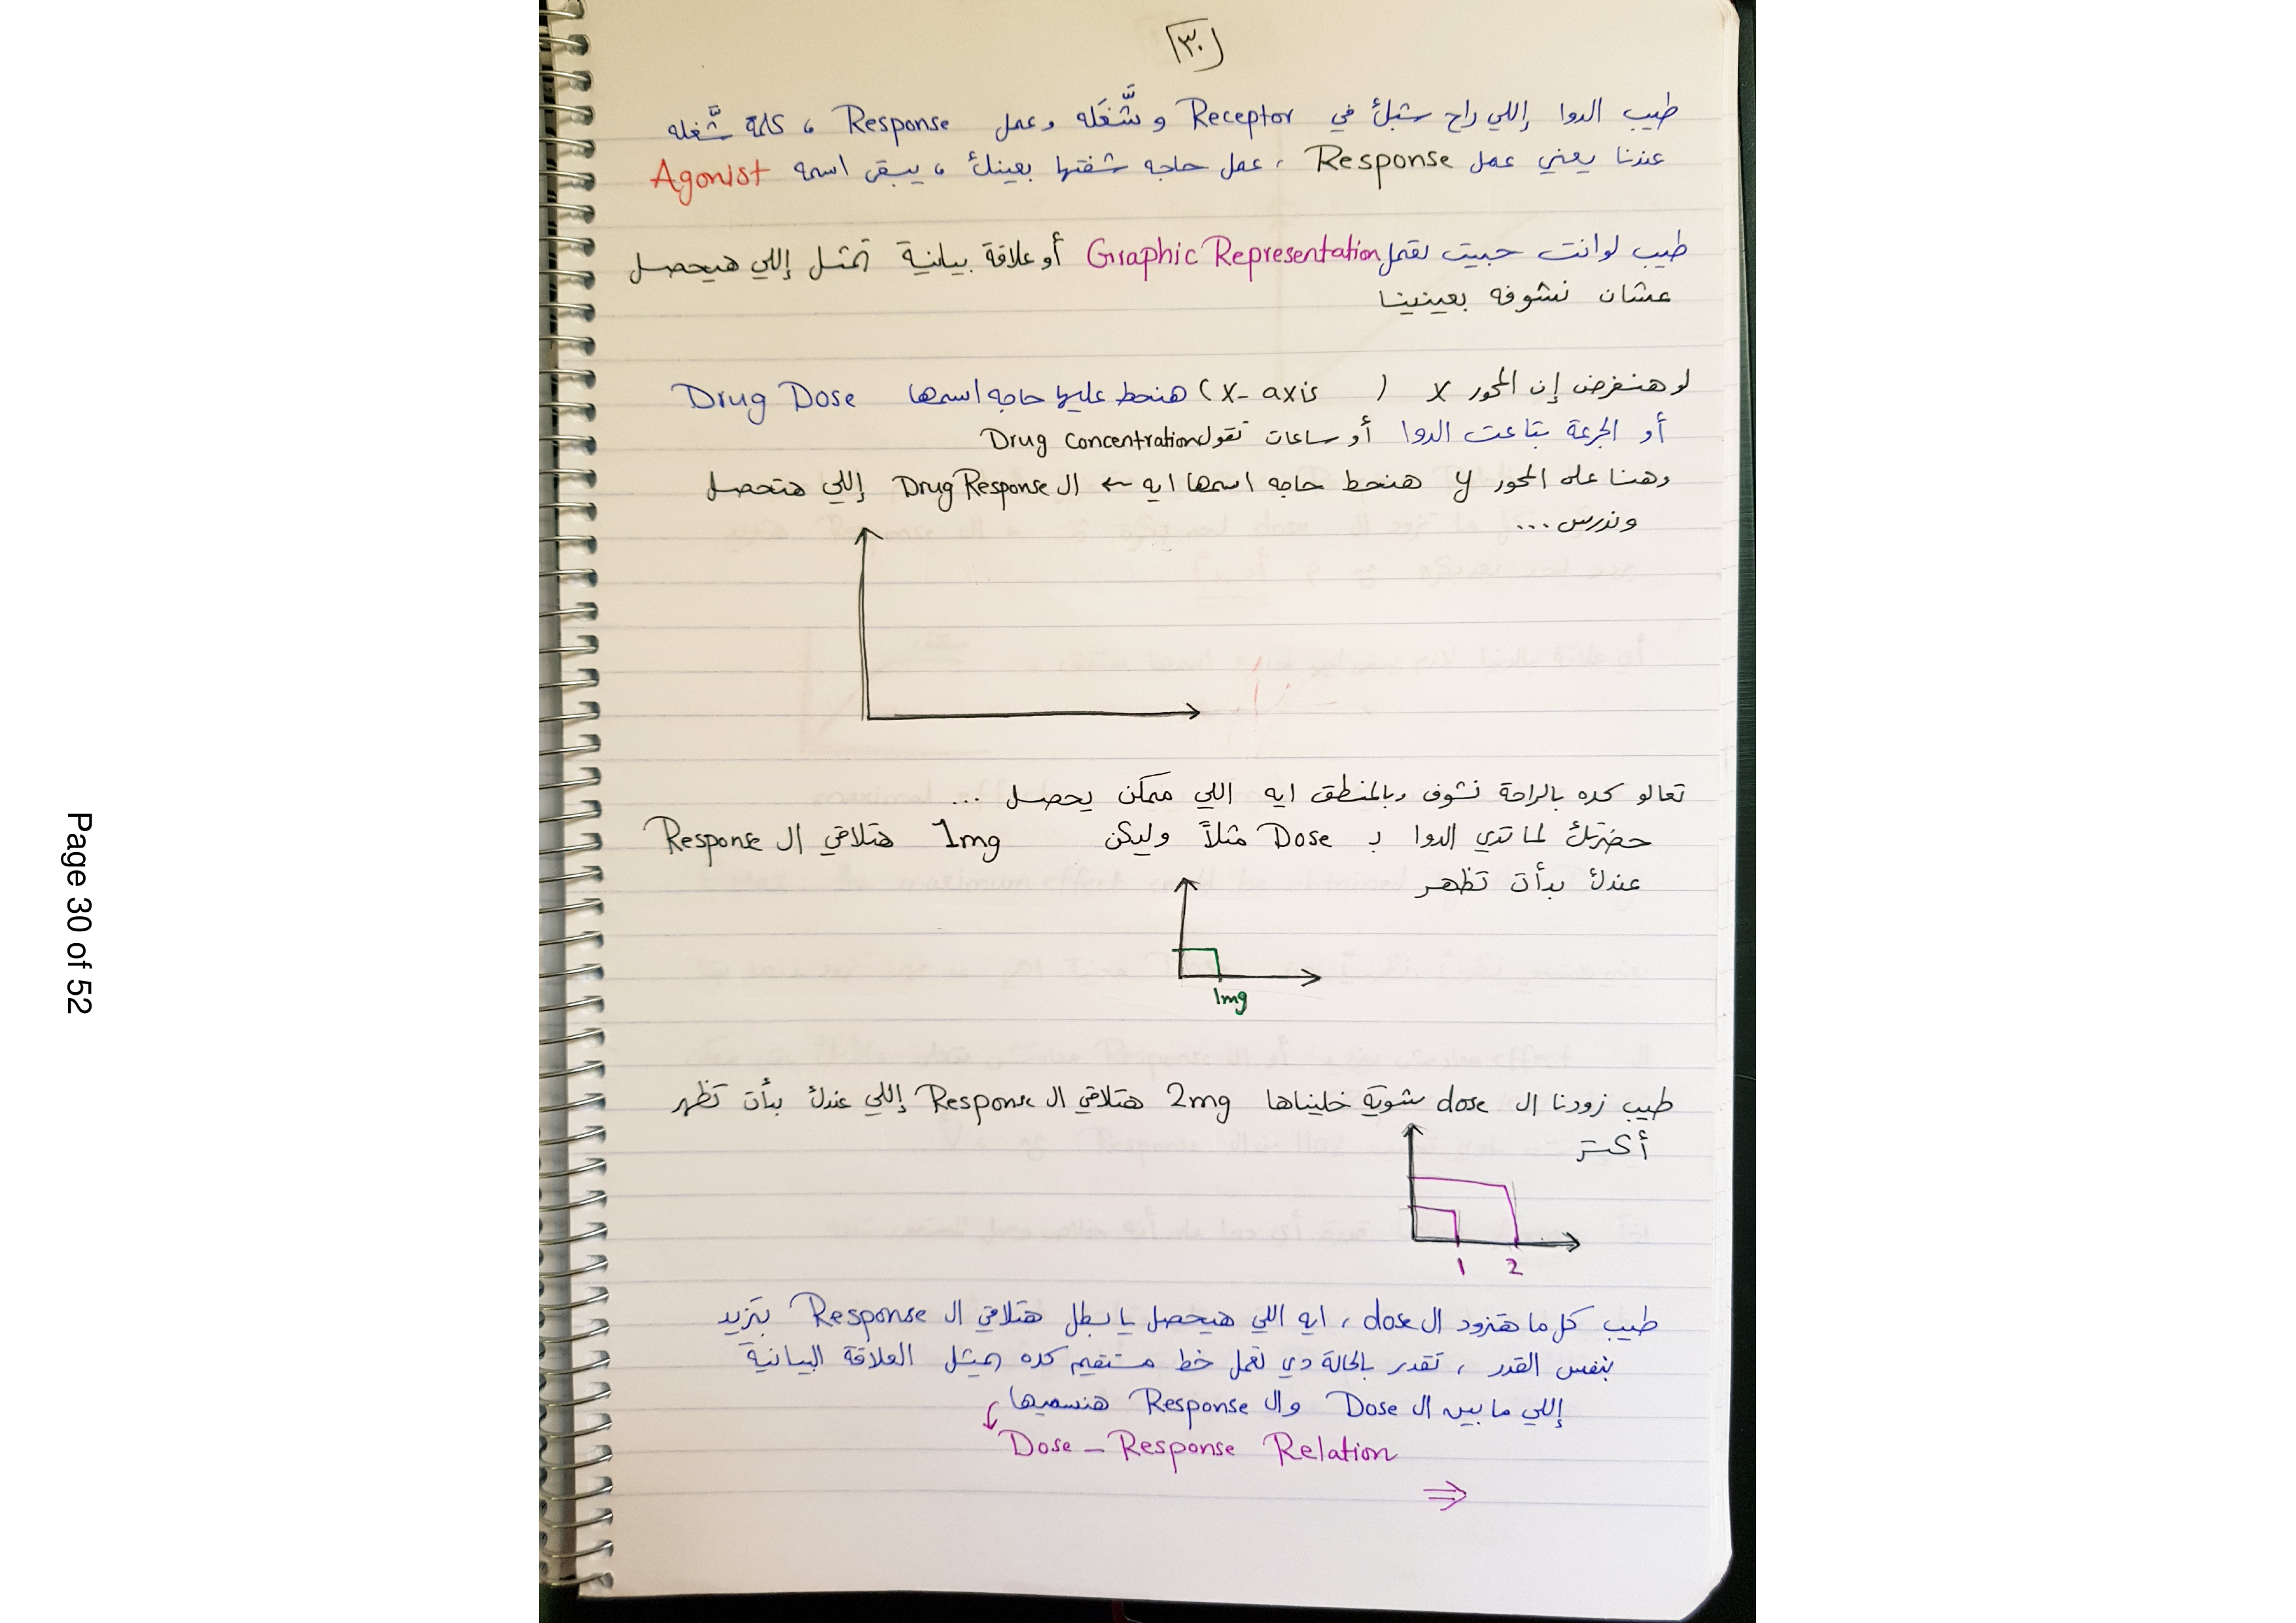 ٣٠
طيب الدوا إللي راح شبك في Receptor و شَّغَله وعمل Response ، كلمة شَّغله
عندنا يعني عمل Response ، عمل حاجه شفتها بعينك ، يبقى اسمه Agonist
طيب لو انت حبيت تعمل Graphic Representation أو علاقة بيانية تمثل إللي هيحصل
عشان نشوفه بعينينا
لو هنفرض إن المحور X (X-axis) هنحط عليها حاجه اسمها Drug Dose
أو الجرعة بتاعت الدوا أو ساعات تقول Drug Concentration
وهنا على المحور y هنحط حاجه اسمها ايه ← ال Drug Response إللي هتحصل
وندرس ...
تعالو كده بالراحة نشوف وبالمنطق ايه اللي ممكن يحصل ...
حضرتك لما تدي الدوا بـ Dose مثلاً وليكن 1mg هتلاقي ال Response
عندك بدأت تظهر
1mg
طيب زودنا ال dose شوية خليناها 2mg هتلاقي ال Response إللي عندك بدأت تظهر
أكتر
1 2
طيب كل ما هتزود ال dose ، ايه اللي هيحصل يا بطل هتلاقي ال Response بتزيد
بنفس القدر ، تقدر بالحالة دي تعمل خط مستقيم كده يمثل العلاقة البيانية
إللي ما بين ال Dose وال Response هنسميها
Dose – Response Relation
⇒
Page 30 of 52